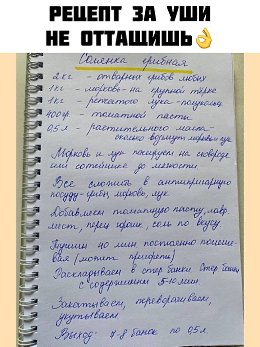 РЕЦЕПТ ЗА УШИ
НЕ ОТТАЩИШЬ👌
Солянка грибная
2 кг - отварных грибов любых
1 кг - морковь на крупной тёрке
1 кг - репчатого лука - полукольца
400 гр. - томатной пасты
0,5 л - растительного масла
сколько возьмут морковь и лук
Морковь и лук пасеруем на сковороде
или сотейнике до мягкости
Все сложить в антипригарную
посуду - грибы, морковь, лук
Добавляем томатную пасту, лавр.
лист, перец горош., соль по вкусу.
Тушим 40 мин постоянно помеши-
вая (может пригореть)
Раскладываем в стер. банки. Стер. банки
с содержимым 5-10 мин.
Закатываем, переворачиваем,
укутываем.
Выход: 7-8 банок по 0,5 л.